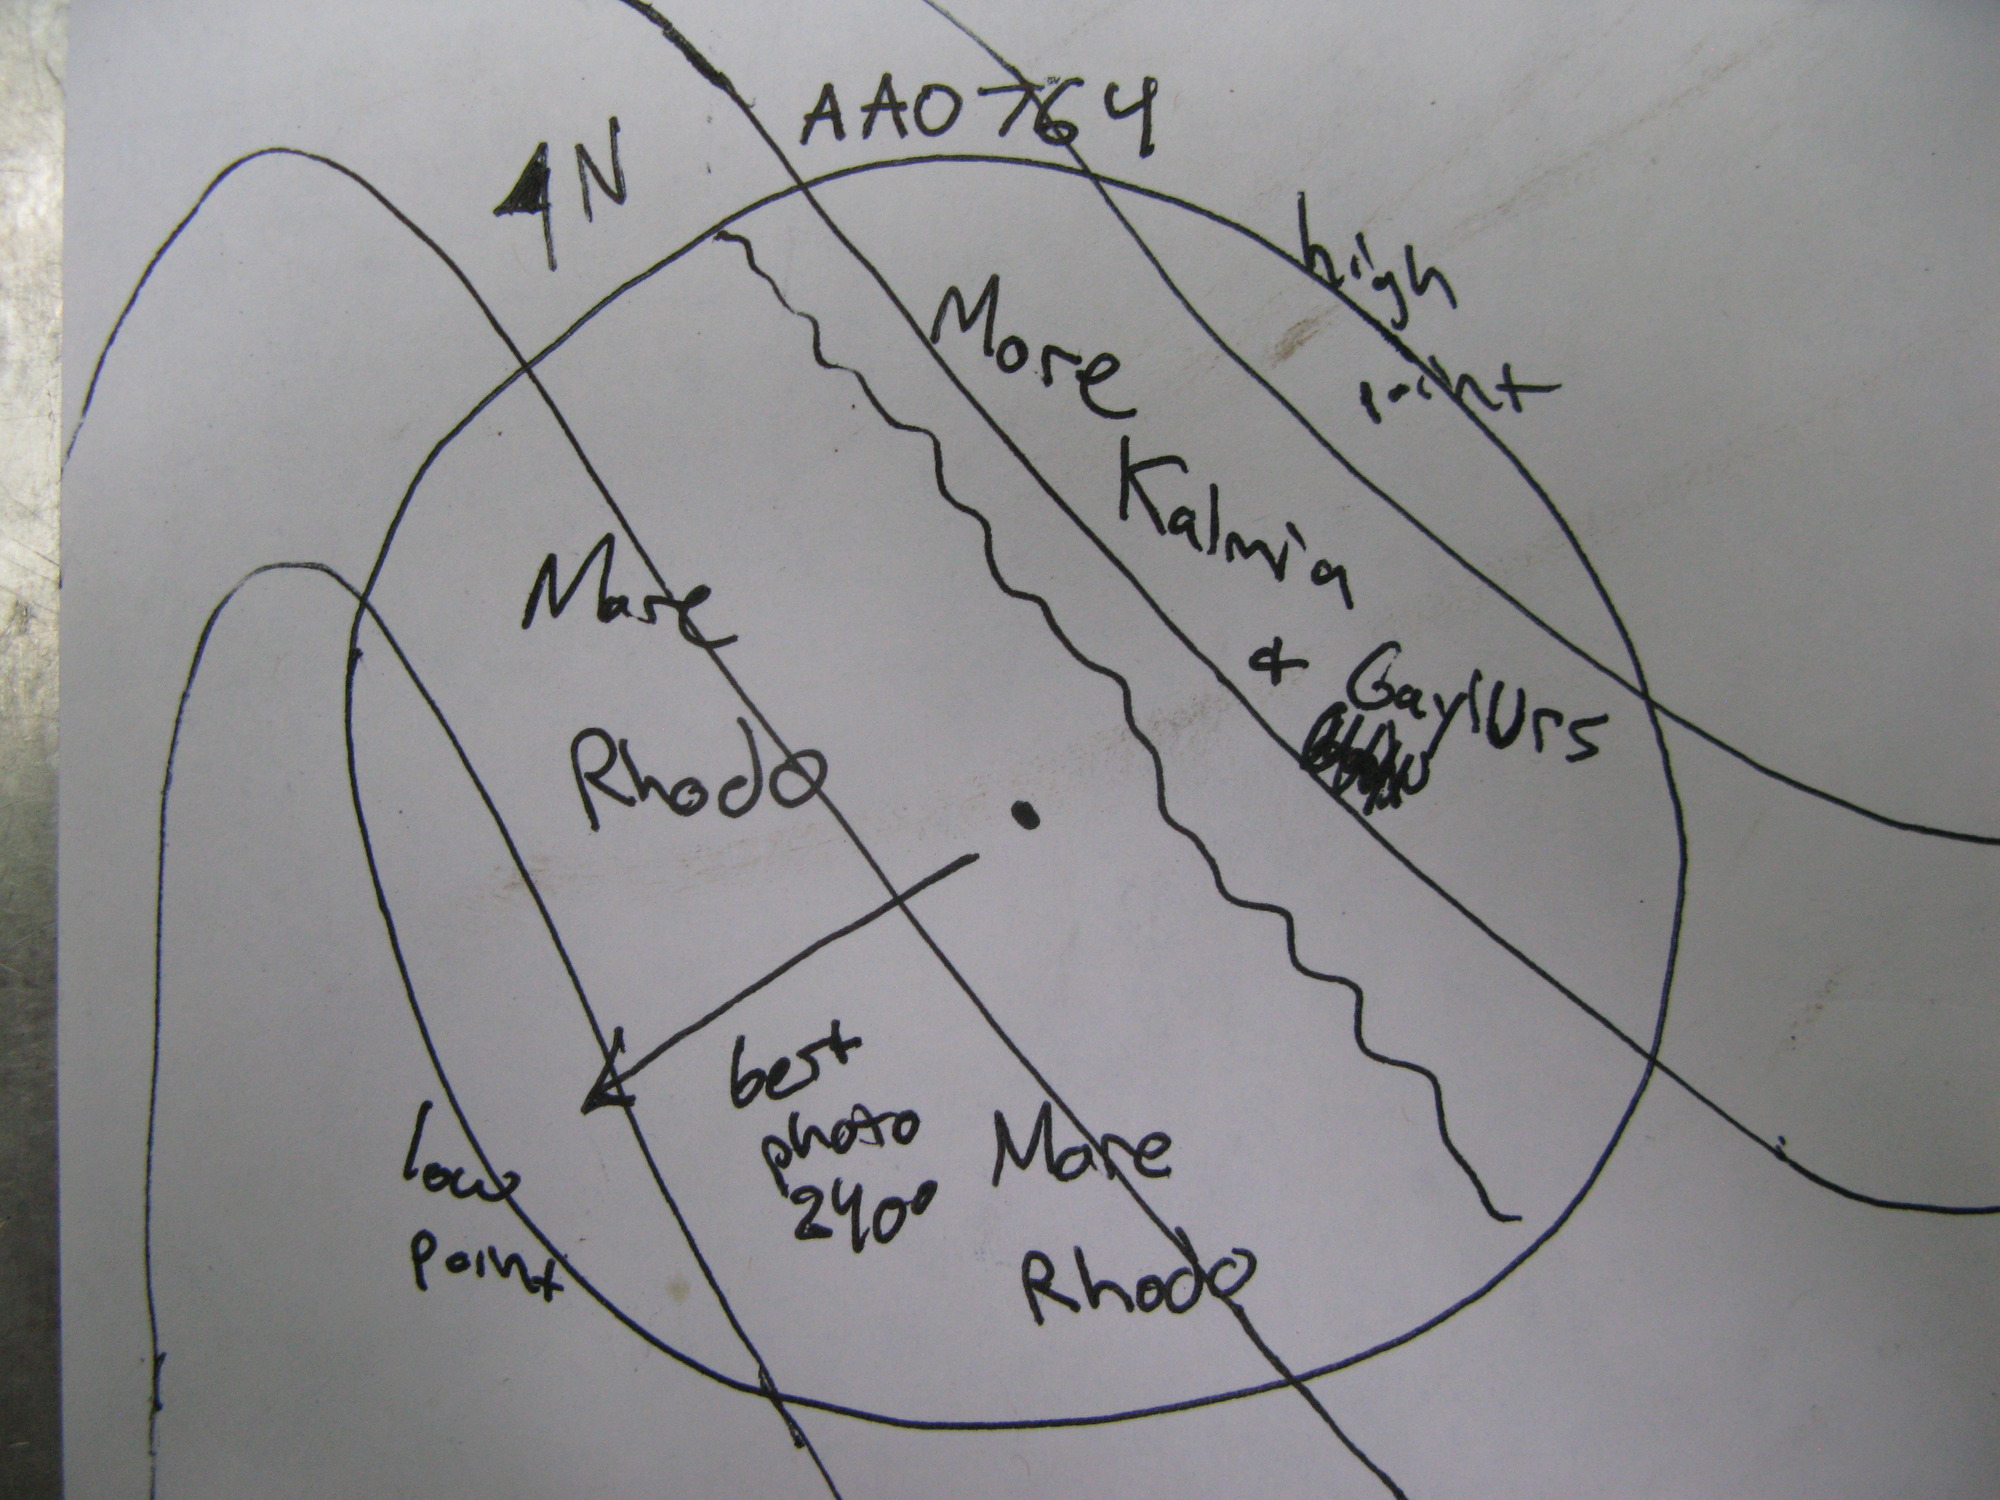 AA0764
N
high
point
More
Kalmia
+ GaylUrs
More
Rhodo
best
photo
240°
More
Rhodo
low
point